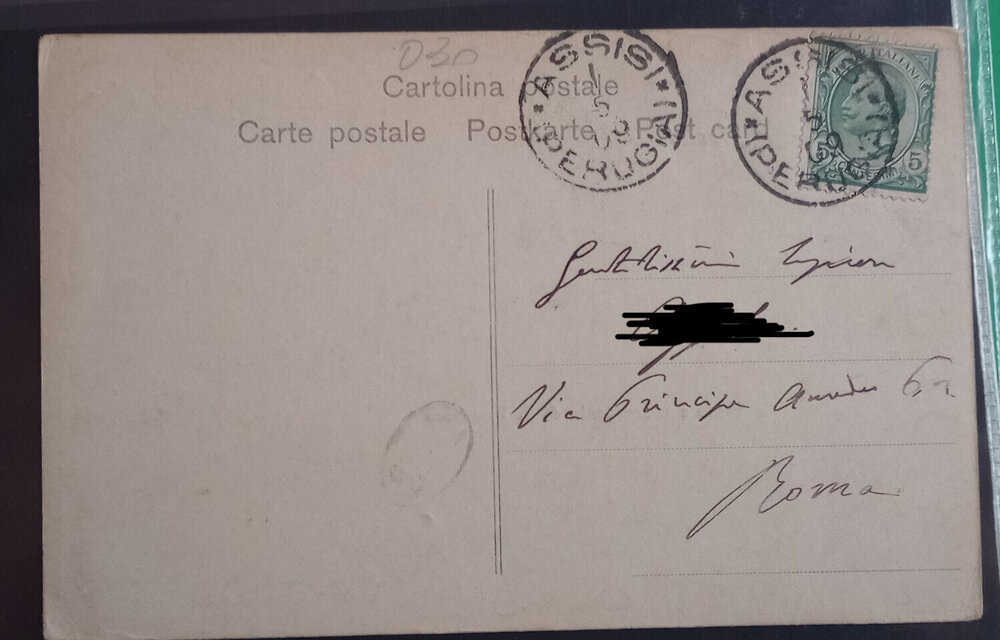 030
Cartolina postale
Carte postale Postkarte Post card
ASSISI
(PERUGIA)
1 5 09
ASSISI
POSTE ITALIANE
5 CENTESIMI 5
Gentilissimi Signori
Via Principe Amedeo
Roma